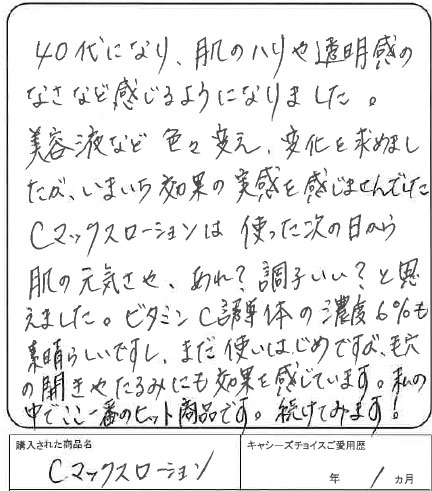 40代になり、肌のハリや透明感の
なさなど感じるようになりました。
美容液など色々変え、変化を求めまし
たが、いまいち効果の実感を感じませんでした
Cマックスローションは使った次の日から
肌の元気さや、あれ？調子いい？と思
えました。ビタミンC誘導体の濃度6%も
素晴らしいですし、まだ使いはじめですが、毛穴
の開きやたるみにも効果を感じています。私の
中でここ一番のヒット商品です。続けてみます！
購入された商品名
Cマックスローション
キャシーズチョイスご愛用歴
年 1ヵ月